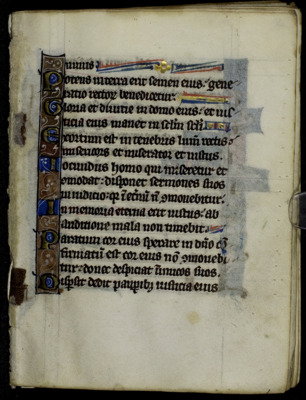 nimis
Potens in terra erit semen eius: gene
ratio rectorum benedicetur.
Gloria et divitie in domo eius: et ius
ticia eius manet in sclm scli
Exortum est in tenebris lumen rectis
misericors et miserator et iustus.
Iocundus homo qui miseretur et
comodat: disponet sermones suos
in iudicio: qr in etnū nō commovebitur.
In memoria eterna erit iustus: ab
auditione mala non timebit.
Paratum cor eius sperare in dño con
firmatū est cor eius nō commovebi
tur: donec despiciat inimicos suos.
Dispsit dedit paupibȝ iusticia eius